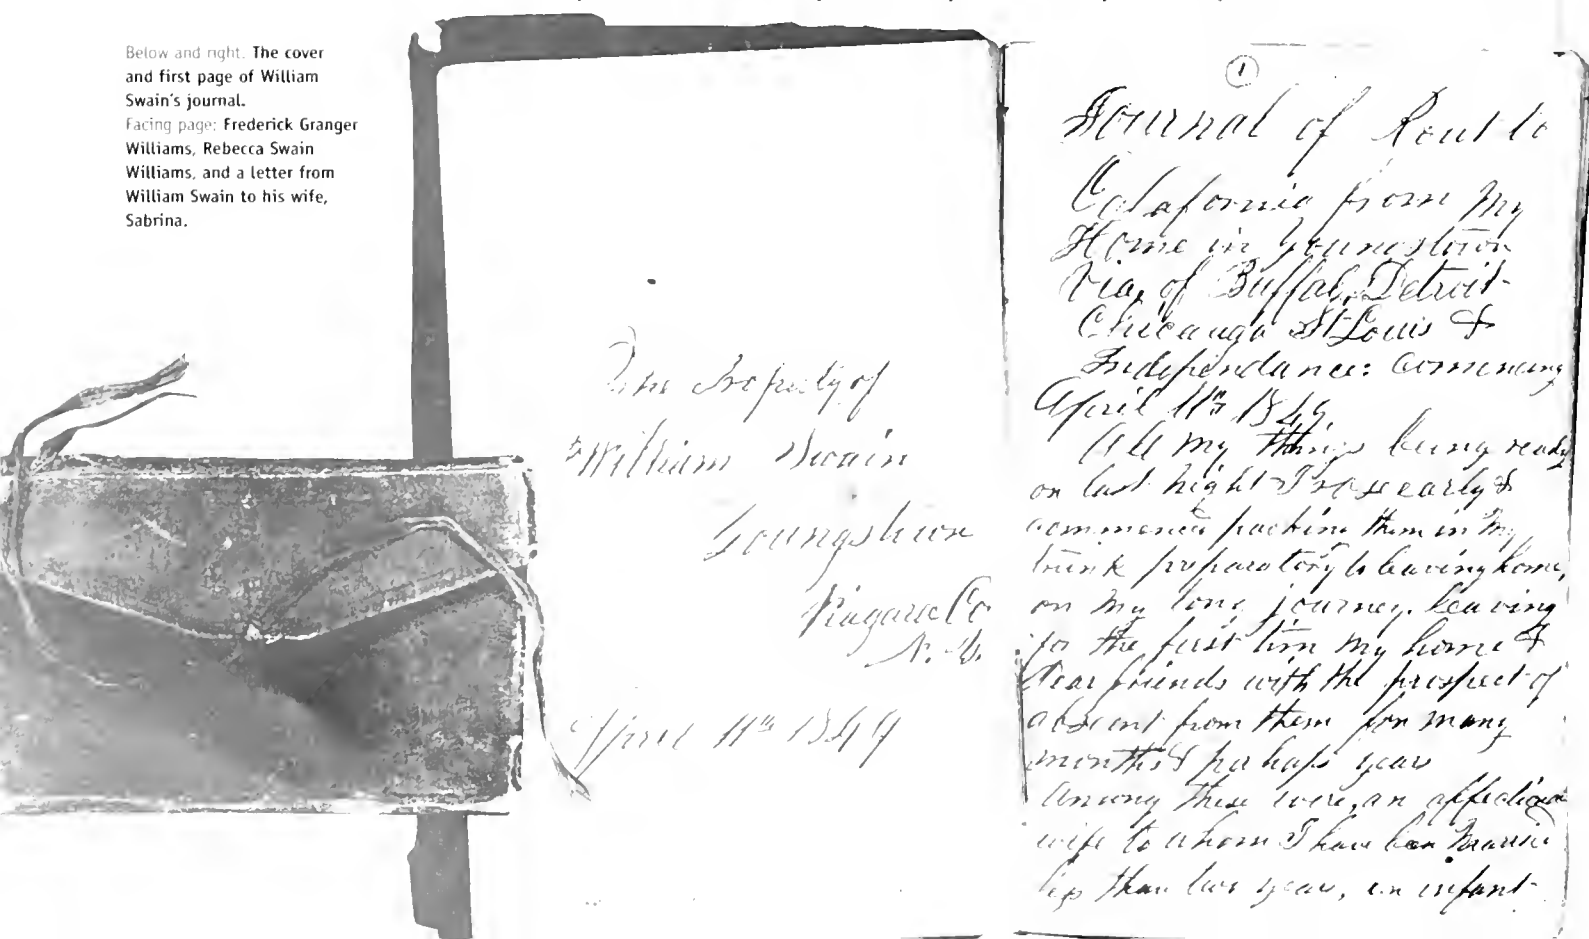 Below and right. The cover
and first page of William
Swain's journal.
Facing page: Frederick Granger
Williams, Rebecca Swain
Williams, and a letter from
William Swain to his wife,
Sabrina.
The Property of
William Swain
Youngstown
Niagara Co
N. Y.
April 11th 1849
1
Journal of Rout to
Calafornia from My
Home in Youngstown
Via, of Buffalo, Detroit
Chicaugo St Louis &
Independance: Comencing
April 11th 1849
All my things being ready
on last night I rose early &
commenced packing them in my
trunk preparatory to leaving home,
on my long journey. leaving
for the first time my home &
dear friends with the prospect of
absent from them for many
months & perhaps years
Among these were, an affectionate
wife to whom I have been
less than two years, an infant